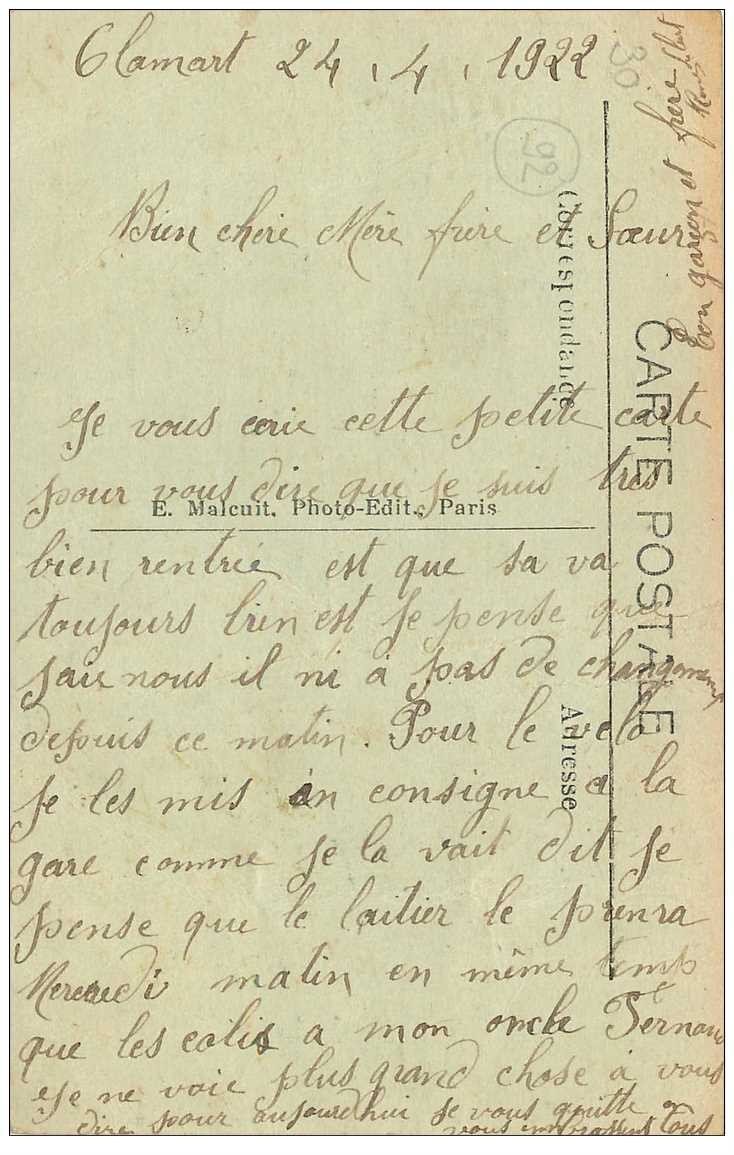 Clamart 24.4.1922
30
92
Bien chère Mère frère et Sœur
Je vous écrie cette petite carte
pour vous dire que je suis très
bien rentrée est que sa va
toujours bien est je pense que
nous il ni a pas de changement
depuis ce matin. Pour le velo
je les mis en consigne a la
gare comme je la vait dit je
pense que le laitier le prenra
Mercredi matin en même temp
que les colis a mon oncle Fernand
Je ne voie plus grand chose à vous
dire pour aujourd'hui je vous quitte en
vous embrassent tous
Ton garçon et frère
CARTE POSTALE
Correspondance
Adresse
E. Malcuit, Photo-Edit., Paris